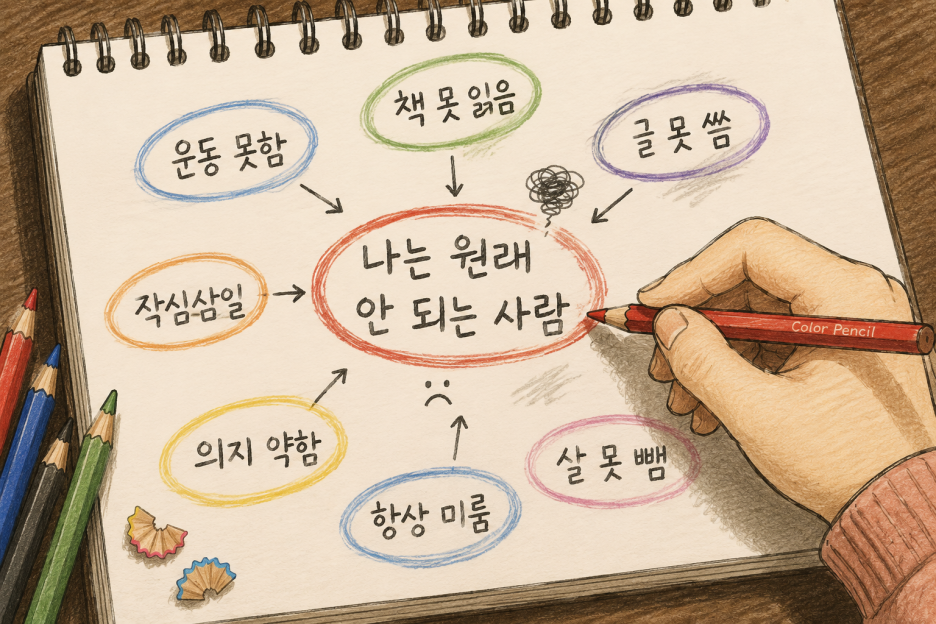 운동 못함
책 못 읽음
글 못 씀
나는 원래
안 되는 사람
작심삼일
의지 약함
항상 미룸
살 못 뺌
Color Pencil